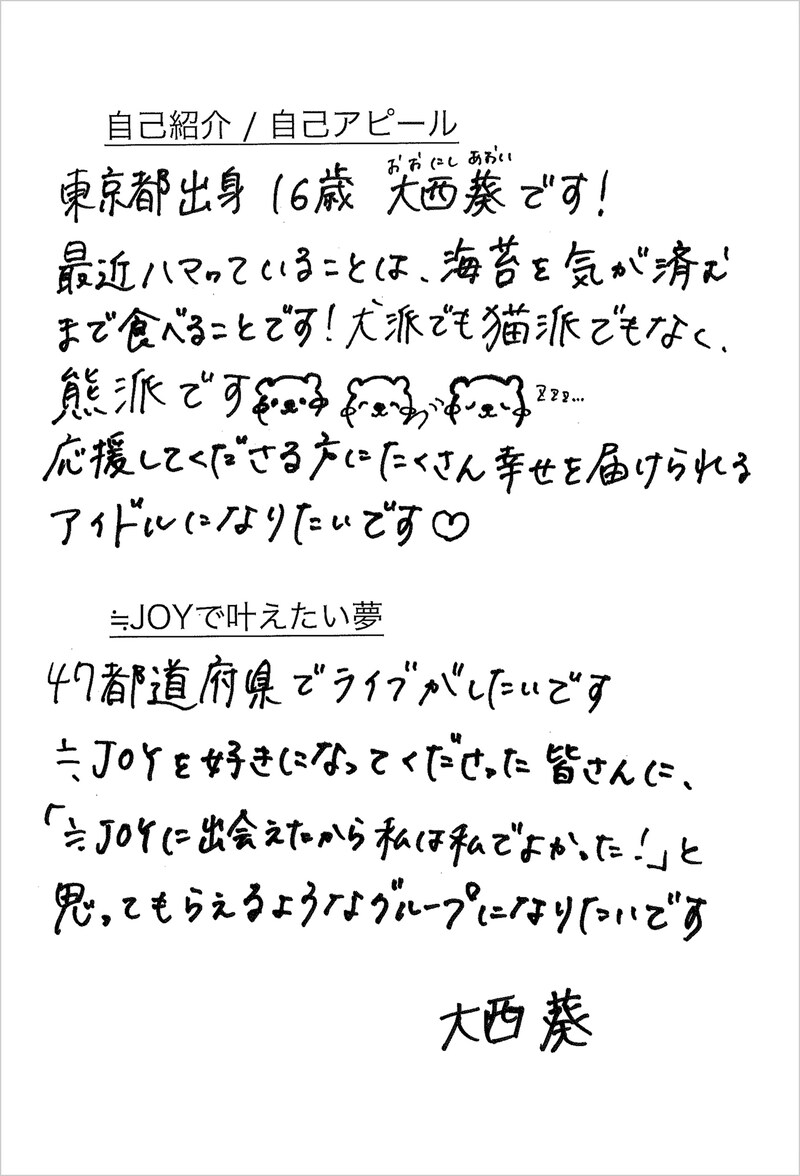 自己紹介 / 自己アピール
おおにし あおい
東京都出身 16歳 大西葵です!
最近ハマっていることは、海苔を気が済む
まで食べることです!犬派でも猫派でもなく、
熊派です zzz...
応援してくださる方にたくさん幸せを届けられる
アイドルになりたいです♡
≒JOYで叶えたい夢
47都道府県でライブがしたいです
≒JOYを好きになってくださった皆さんに、
「≒JOYに出会えたから私は私でよかった!」と
思ってもらえるようなグループになりたいです
大西 葵